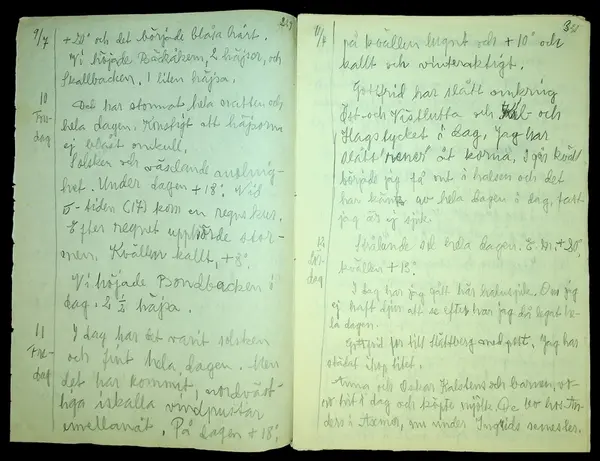 9/7
+20° och det började blåsa hårt.
Vi höjade Bäckåkern, 2 häjsor, och
Skallbacken, 1 liten häjsa.
10
Tors-
dag
Det har stormat hela natten och
hela dagen. Konstigt att häjsorna
ej blåst omkull.
Solsken och växlande molnig-
het. Under dagen +18°. Vid
5-tiden (17) kom en regnskur.
Efter regnet upphörde stor-
men. Kvällen kallt, +8°.
Vi höjade Bondbacken i
dag. 2 ½ häjsa.
11
Fre-
dag
I dag har det varit solsken
och fint hela dagen. Men
det har kommit, nordväst-
liga iskalla vindpustar
emellanåt. På dagen +18°,
11/7
på kvällen lugnt och +10° och
kallt och vinteraktigt.
Gottfrid har slått omkring
Öst-och Västlutta och och
Hagstycket i dag, Jag har
slått "renor" åt korna, I går kväll
började jag få ont i halsen och det
har känts av hela dagen i dag, fast
jag är ej sjuk.
12
Lör-
dag
Strålande sol hela dagen. E. m. +20°,
kvällen +13°.
I dag har jag gått här halvsjuk. Om jag
ej haft djur att se efter har jag då legat he-
la dagen.
Gottfrid for till med post, Jag har
städat ihop litet.
Anna och Oskar Karlstens och barnen, vo-
ro hit i dag och köpte mjölk. De bo hos An-
ders i Axmar, nu under Ingrids semester.